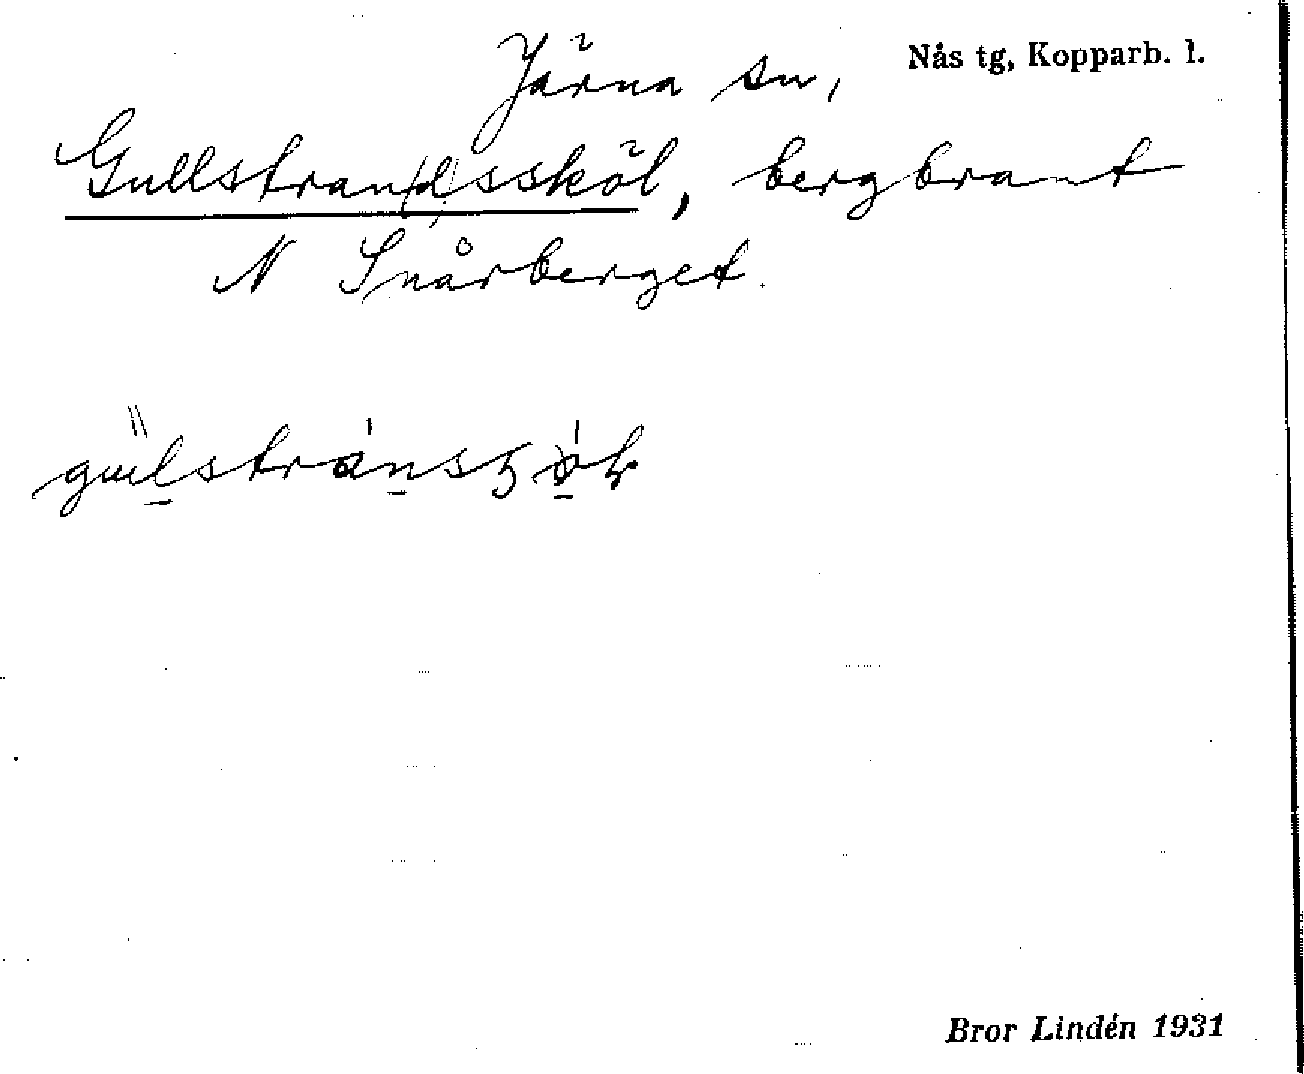 Järna sn, Nås tg, Kopparb. l.
Gullstran(d)ssköl, bergbrant
N Snårberget.
Bror Lindén 1931